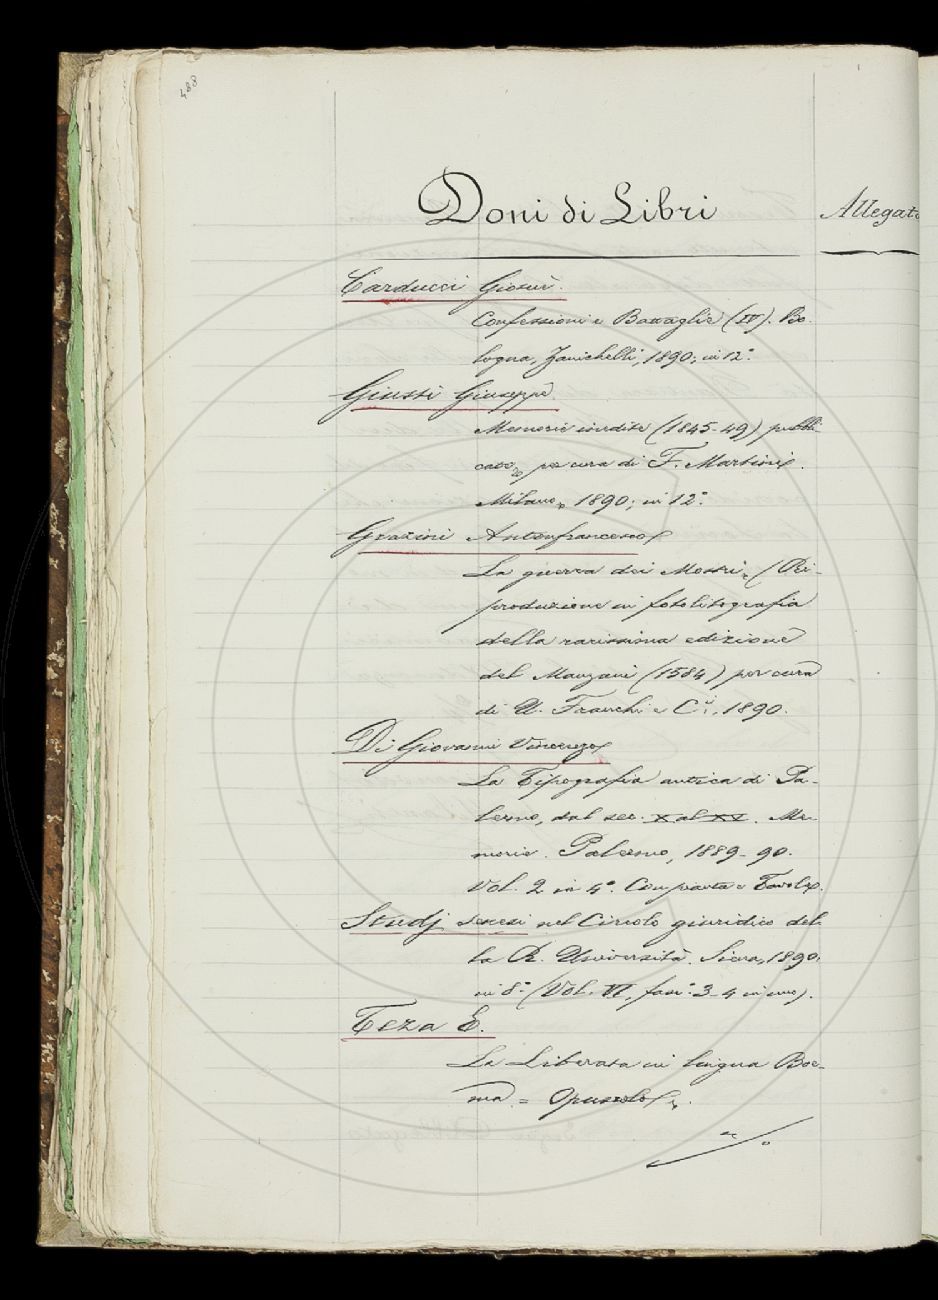 488
Doni di Libri
Allegato
Carducci Giosuè.
Confessioni e Battaglie (IV). Bo-
logna, Zanichelli, 1890; in 12.°
Giusti Giuseppe
Memorie inedite (1845-49) pubbli-
cate per cura di F. Martini.
Milano, 1890; in 12.°
Grazini Antonfrancesco
La guerra dei Mostri, (Ri-
produzione in fotolitografia
della rarissima edizione
del Manzani (1584) per cura
di U. Franchi e C.i, 1890.
Di Giovanni Vincenzo
La Tipografia antica di Pa-
lermo, dal sec. X al XV. Me-
morie. Palermo, 1889-90.
Vol. 2 in 4.° Con pianta e Tavole.
Studj senesi nel Circolo giuridico del-
la R. Università. Siena, 1890.
in 8.° (Vol. VI, fasc. 3-4 in uno).
Teza E.
La Liberata in lingua Boe-
ma. = Opuscolo.